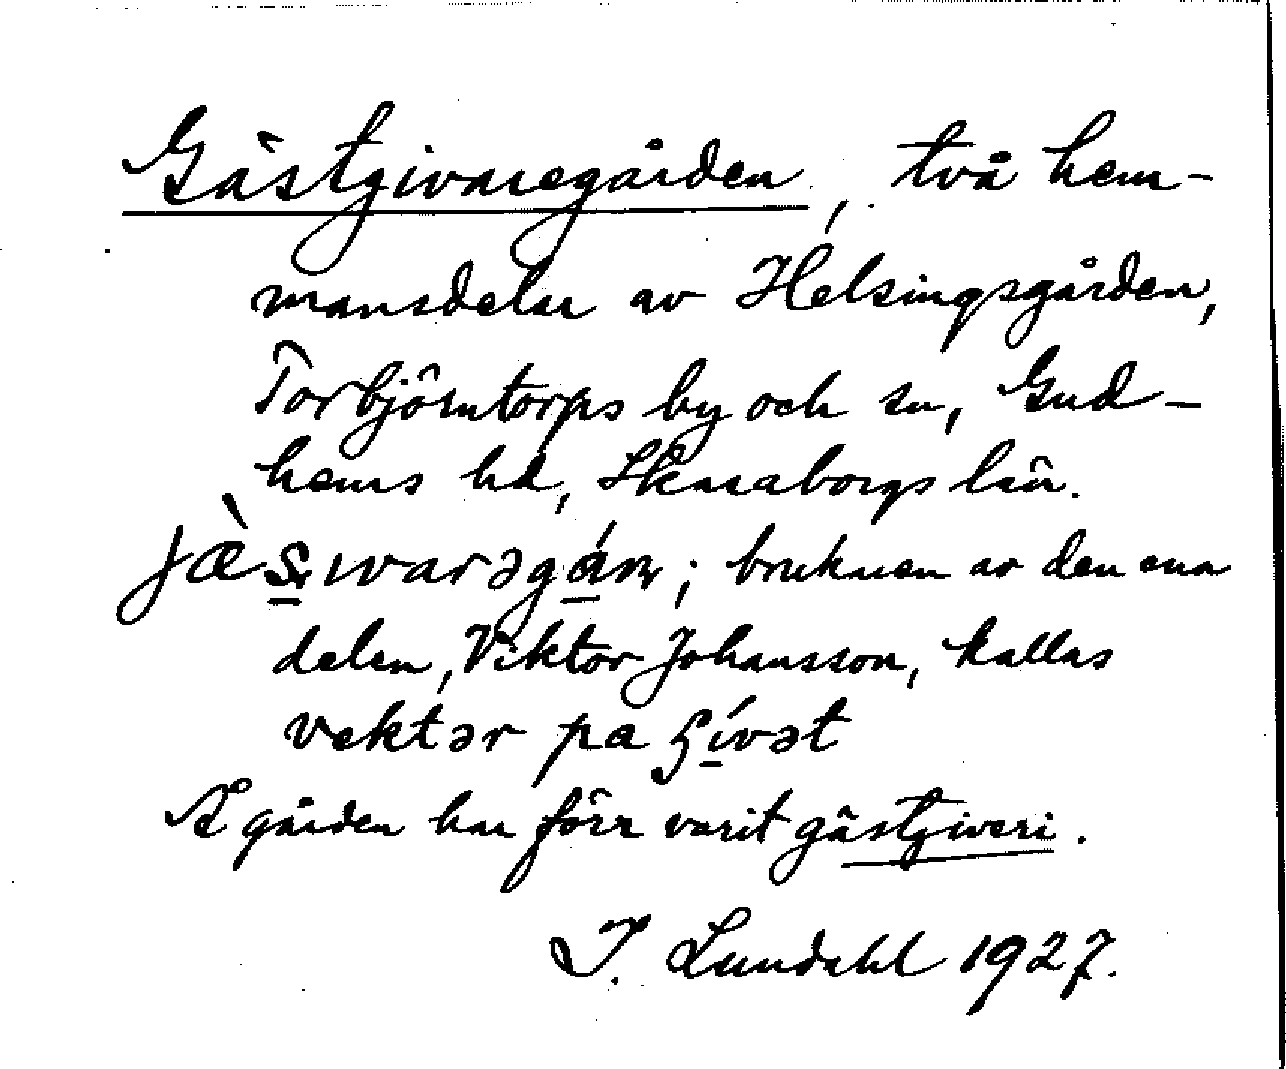 Gästgivaregården, två hem-
mansdelar av Helsingsgården,
Torbjörntorps by och sn, Gud-
hems hd, Skaraborgs län.
jæ̀s̲ıvarəgá̲n; brukaren av den ena
delen, Viktor Johansson, kallas
vektər pa ʃí̲vət
Å gården har förr varit gästgiveri.
I. Lundahl 1927.